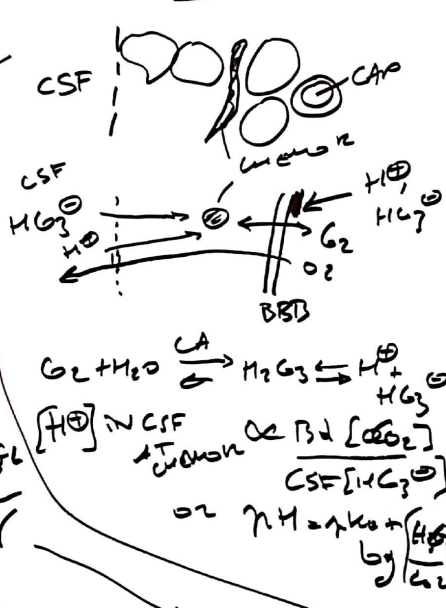 CSF
CAP
CHEMOR
CSF
HCO3⊖
H⊕
H⊕,
HCO3⊖
CO2
O2
BBB
CO2 + H2O CA ⇌ H2CO3 ⇌ H⊕ + HCO3⊖
[H⊕] IN CSF AT CHEMOR ∝ Bld [CO2]
CSF [HCO3⊖]
or pH = pKa +
log
CO2